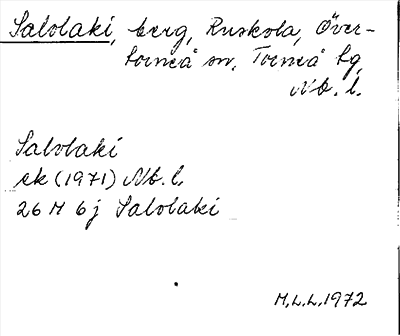 Salolaki, berg, Ruskola, Över-
torneå sn, Torneå tg,
Nb. l.
Salolaki
ek (1971) Nb. l.
26 M 6j Salolaki
M.L.L. 1972